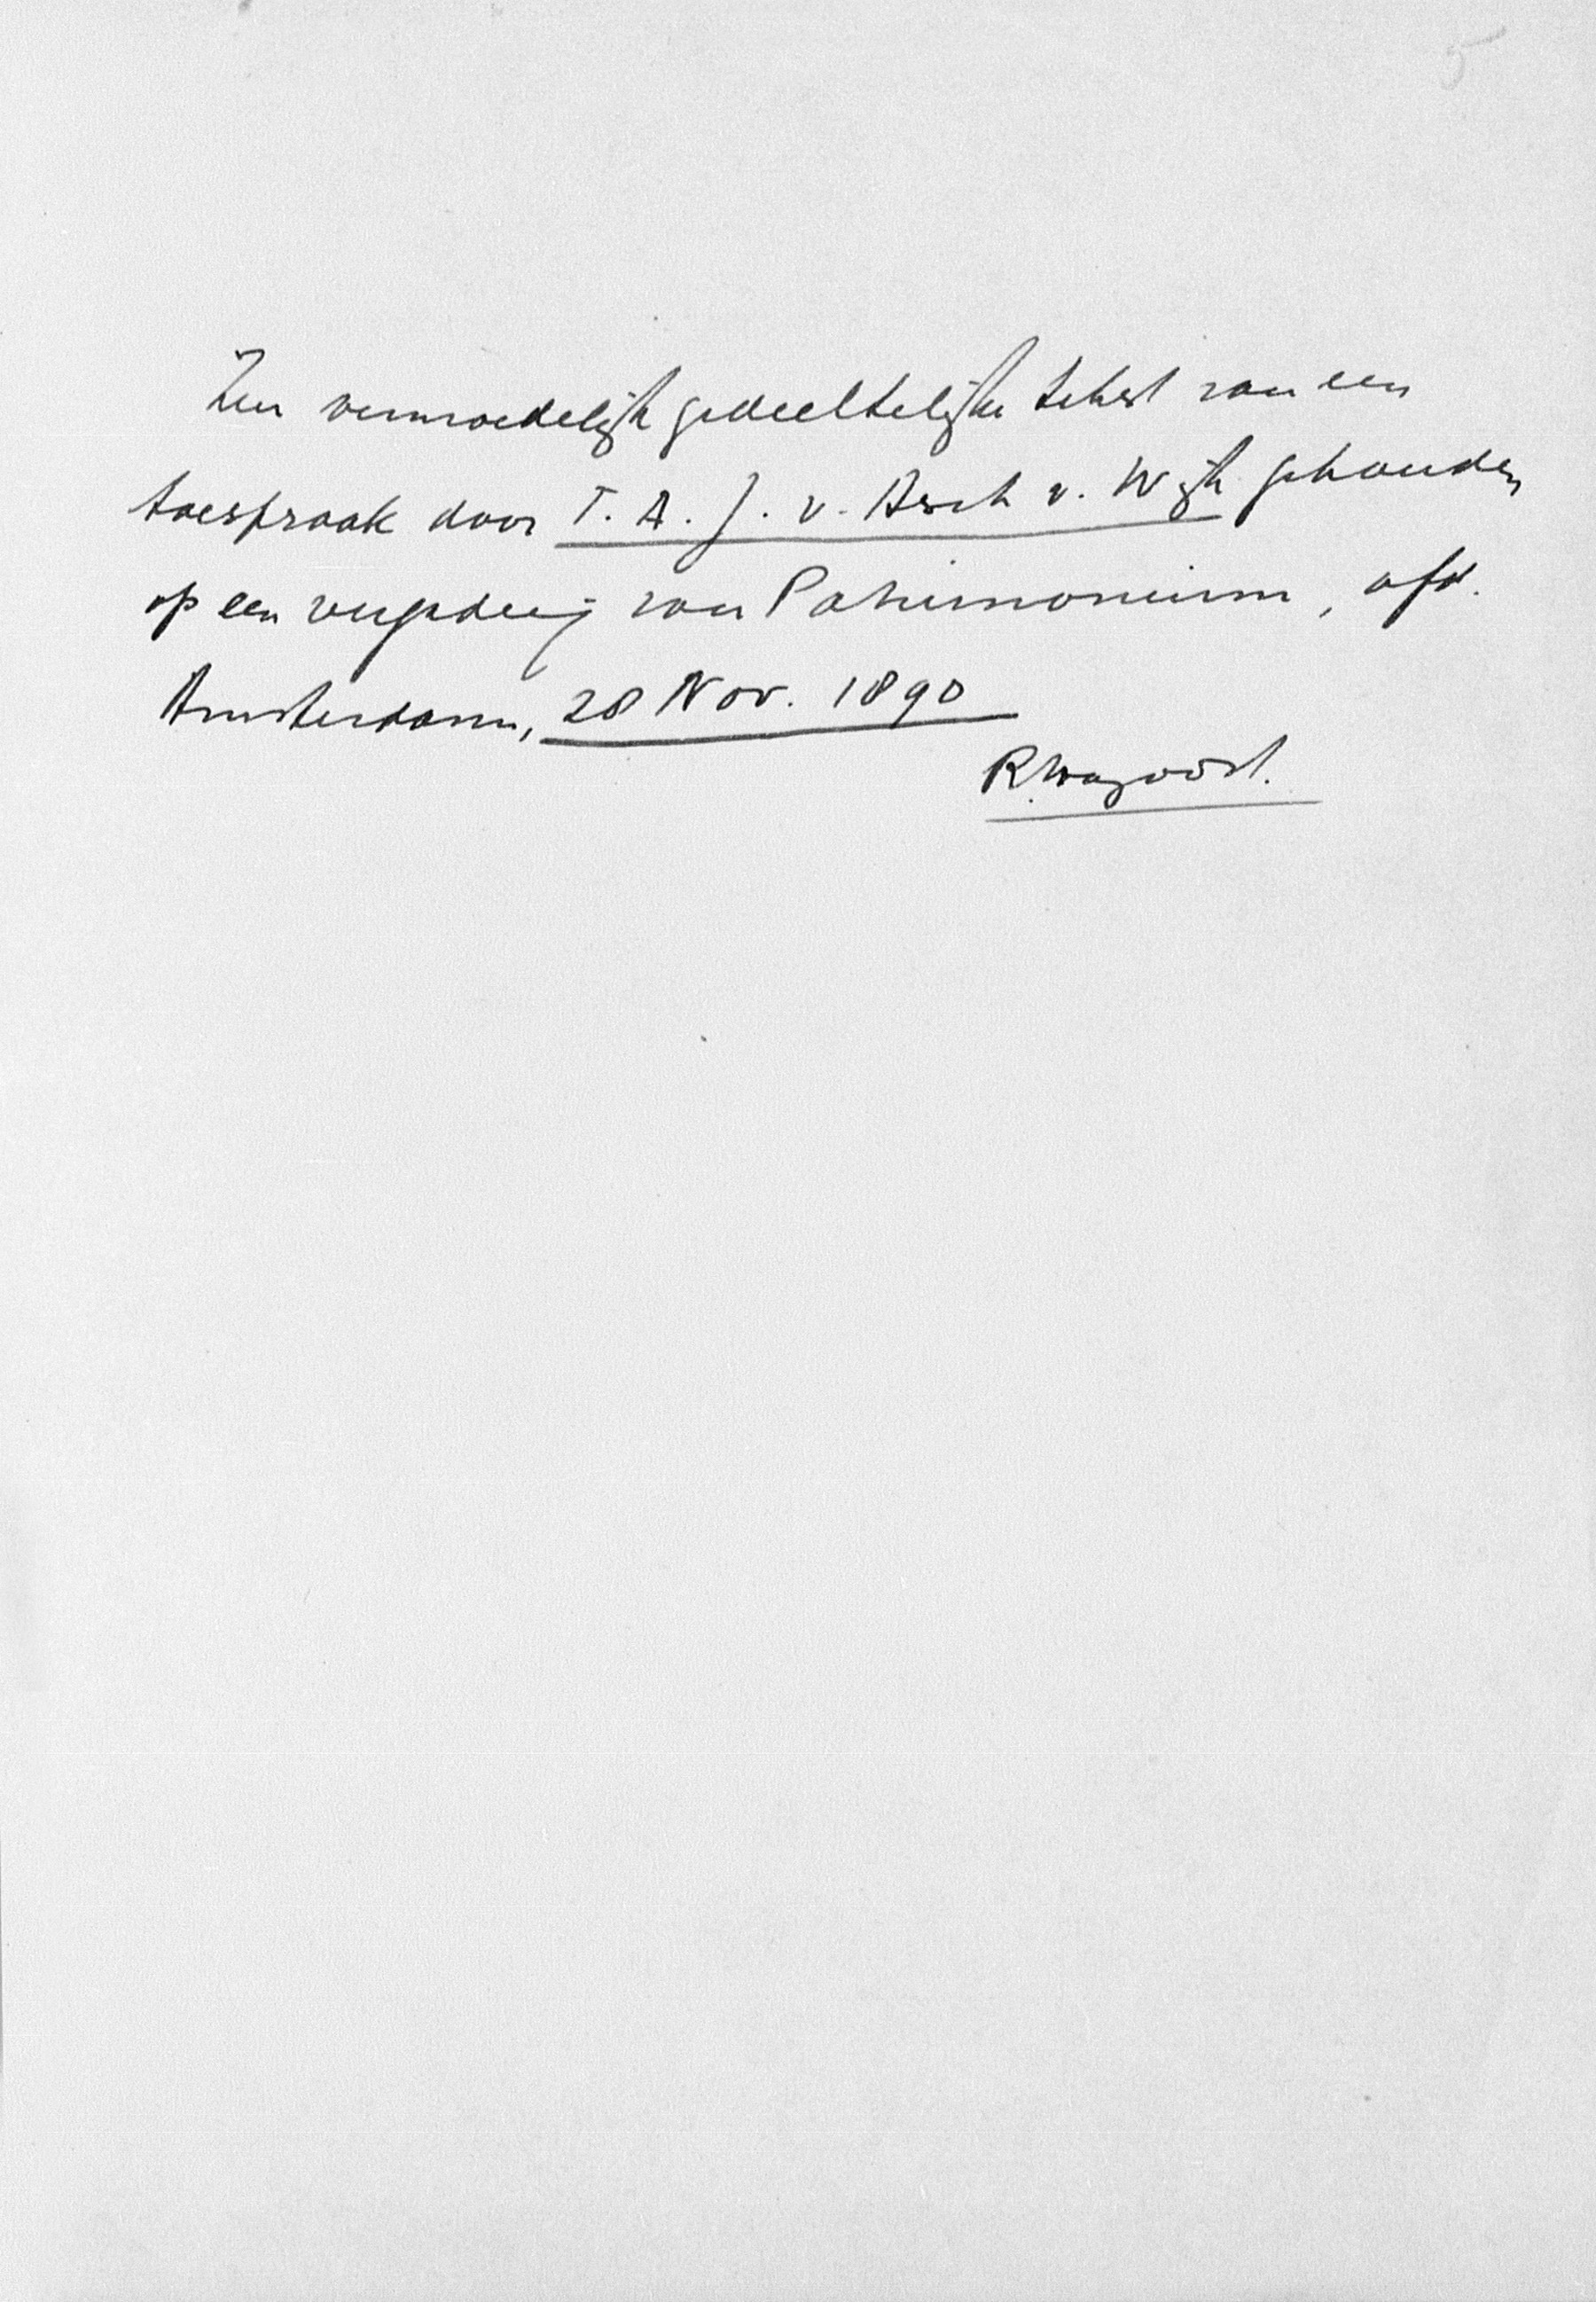 5
Een vermoedelijk gedeeltelijke tekst van een
toespraak door T. A. J. v. Asch v. Wijk gehouden
op een vergadering van Patrimonium, afd.
Amsterdam, 28 Nov. 1890
R.